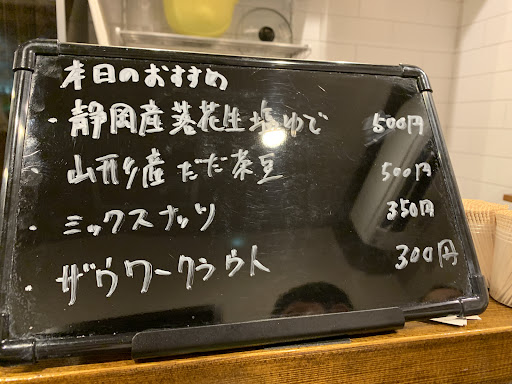 本日のおすすめ
・静岡産落花生塩ゆで 500円
・山形産だだ茶豆 500円
・ミックスナッツ 350円
・ザウワークラウト 300円